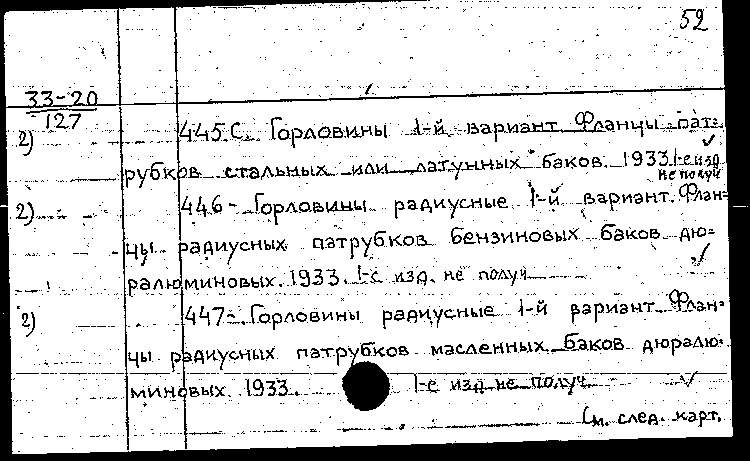 52
33-20
127
2) 445 С. Горловины 1-й вариант Фланцы пат=
рубков стальных или латунных баков. 1933 1-е изд
не получ
2) 446- Горловины радиусные 1-й вариант. Флан=
цы радиусных патрубков бензиновых баков дю=
ралюминовых. 1933. 1-с изд. не получ
2) 447-. Горловины радиусные 1-й вариант. Флан=
цы радиусных патрубков масленных баков дюралю=
миновых 1933. 1-е изд не получ.
См. след. карт.